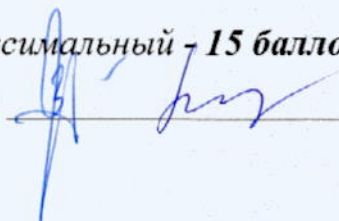 ксимальный - 15 балло